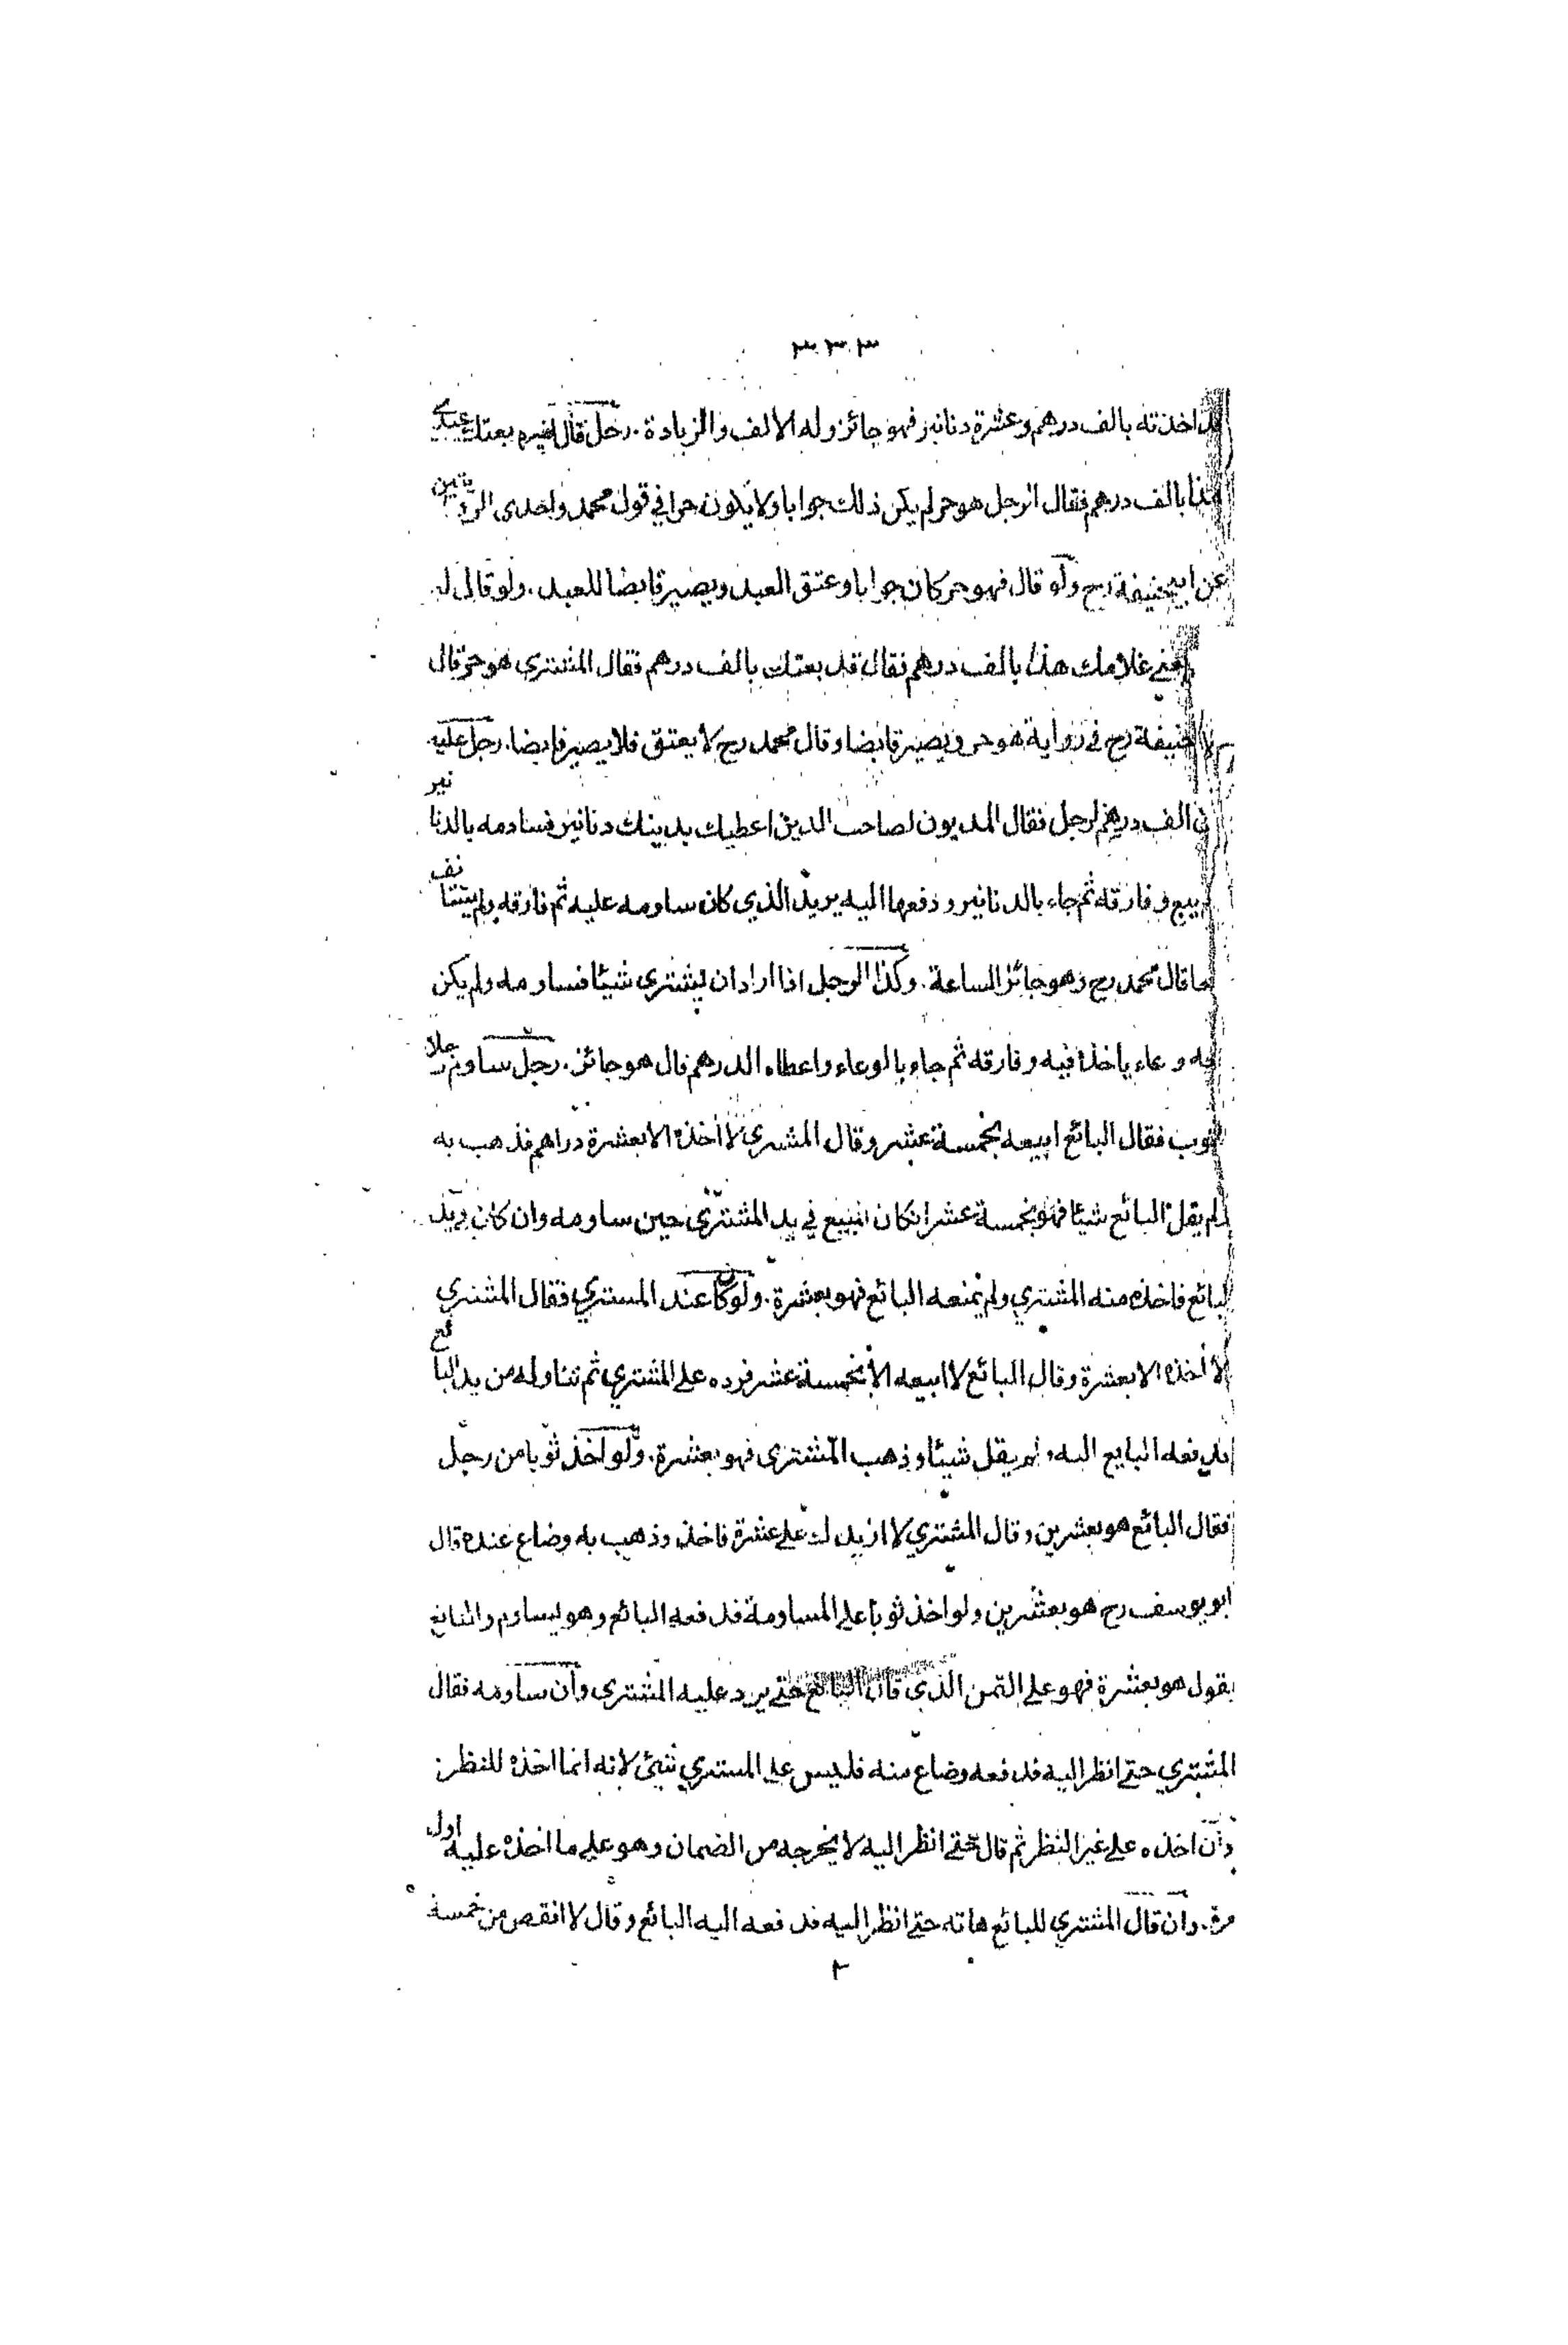 ٣٣٣
قد اخذته بالف درهم وعشرة دنانير فهو جائز وله الالف والزيادة . رجل قال لغيره بعتك عبدي
هذا بالف درهم فقال الرجل هو حر لم يكن ذلك جوابا ولا يكون حرا في قول محمد واحدى الروايتين
عن ابيحنيفة رح ولو قال فهو حر كان جوابا وعتق العبد ويصير قابضا للعبد . ولو قال له
بعني غلامك هذا بالف درهم فقال قد بعتك بالف درهم فقال المشتري هو حر قال
حنيفة رح في رواية هو حر ويصير قابضا وقال محمد رح لا يعتق فلا يصير قابضا . رجل عليه
الف درهم لرجل فقال المديون لصاحب الدين اعطيك بدينك دنانير فساومه بالدنانير
يبع وفارقه ثم جاء بالدنانير ودفعها اليه يريد الذي كان ساومه عليه ثم فارقه ولم يستانف
قال محمد رح وهو جائز الساعة . وكذا الرجل اذا اراد ان يشتري شيئا فساومه ولم يكن
وعاء ياخذ فيه وفارقه ثم جاء بالوعاء واعطاه الدرهم قال هو جائز . رجل ساوم رجلا
بثوب فقال البائع ابيعه بخمسة عشر وقال المشتري لا أخذه الا بعشرة دراهم فذهب به
ولم يقل البائع شيئا فهو بخمسة عشر انكان المبيع في يد المشتري حين ساومه وان كان في يد
البائع فاخذه منه المشتري ولم يمنعه البائع فهو بعشرة . ولو كان عند المشتري فقال المشتري
لا أخذه الا بعشرة وقال البائع لا ابيعه الا بخمسة عشر فرده على المشتري ثم تناوله من يد البائع
فدفعه البايع اليه ولم يقل شيئا وذهب المشتري فهو بعشرة . ولو اخذ ثوبا من رجل
فقال البائع هو بعشرين وقال المشتري لا ازيدك على عشرة فاخذ وذهب به وضاع عنده قال
ابو يوسف رح هو بعشرين ولو اخذ ثوبا على المساومة فدفعه البائع وهو يساوم والبائع
يقول هو بعشرة فهو على الثمن الذي قال البائع حتى يرد عليه المشتري وان ساومه فقال
المشتري حتى انظر اليه فدفعه وضاع منه فليس على المشتري شيئ لانه انما اخذه للنظر
وان اخذه على غير النظر ثم قال حتى انظر اليه لا يخرجه من الضمان وهو على ما اخذه عليه اول
مرة . وان قال المشتري للبائع هاته حتى انظر اليه فدفعه اليه البائع وقال لا انقص من خمسة